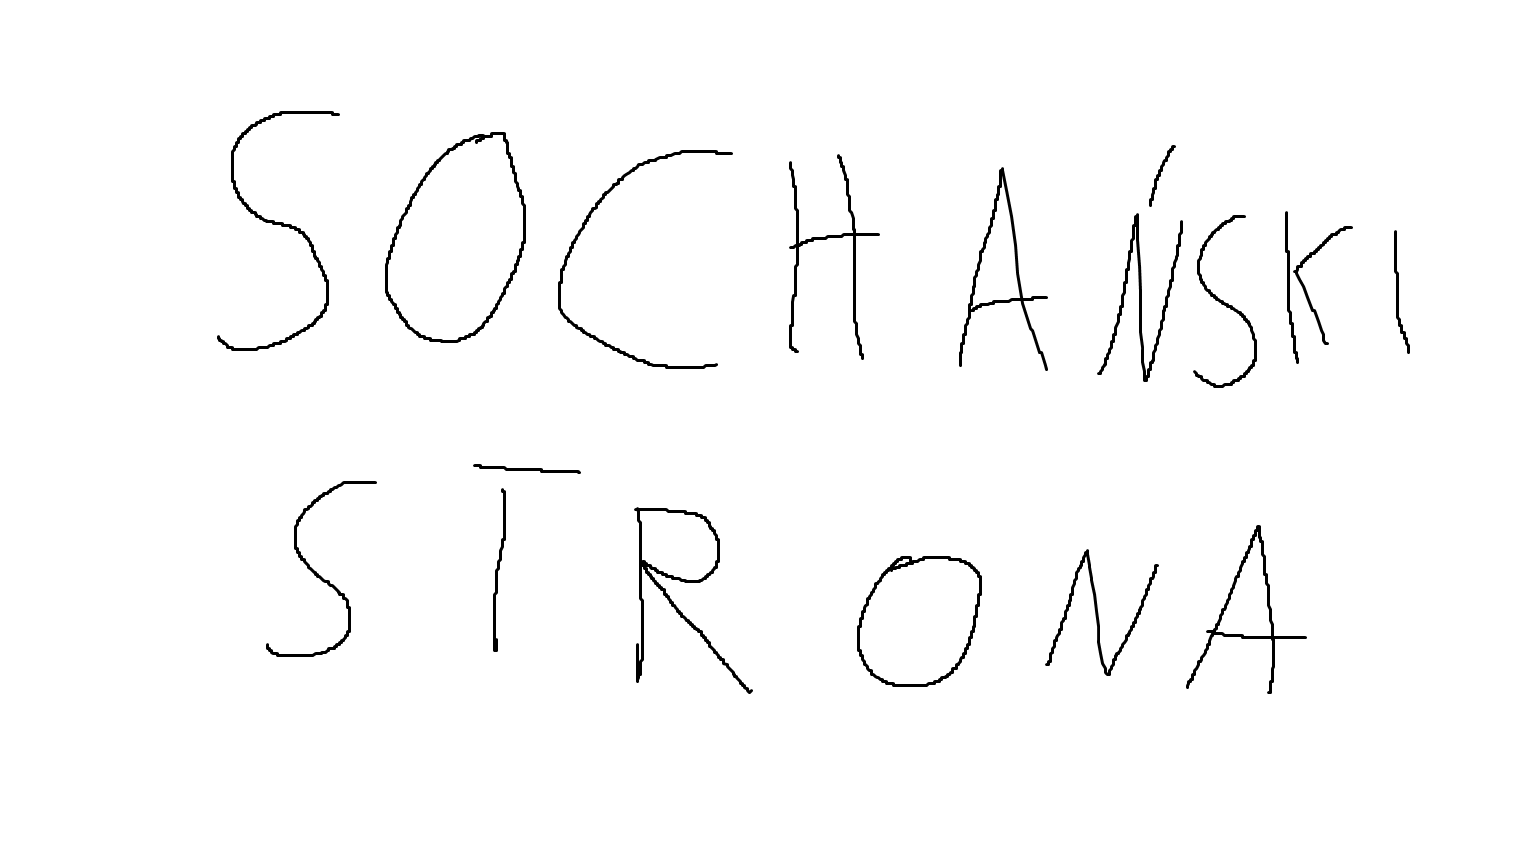 SOCHAŃSKI
STRONA